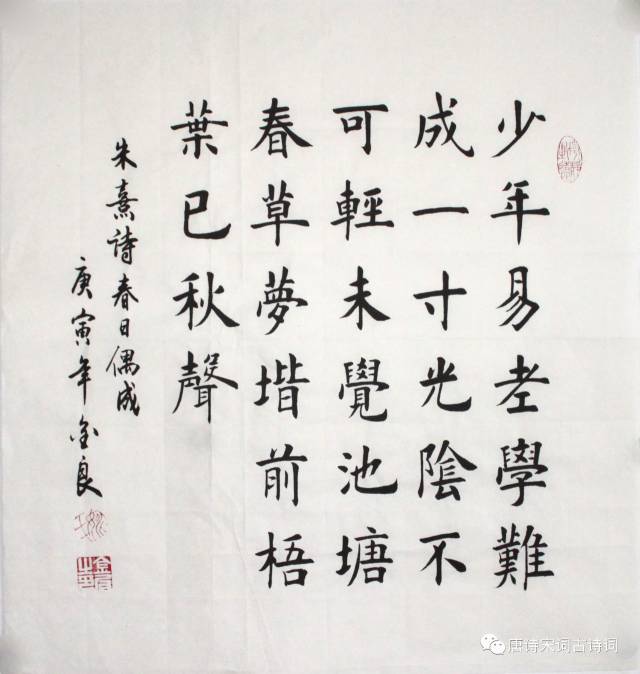 少年易老學難
成一寸光陰不
可輕未覺池塘
春草夢堦前梧
葉已秋聲
朱熹詩春日偶成
庚寅年金良
唐诗宋词古诗词